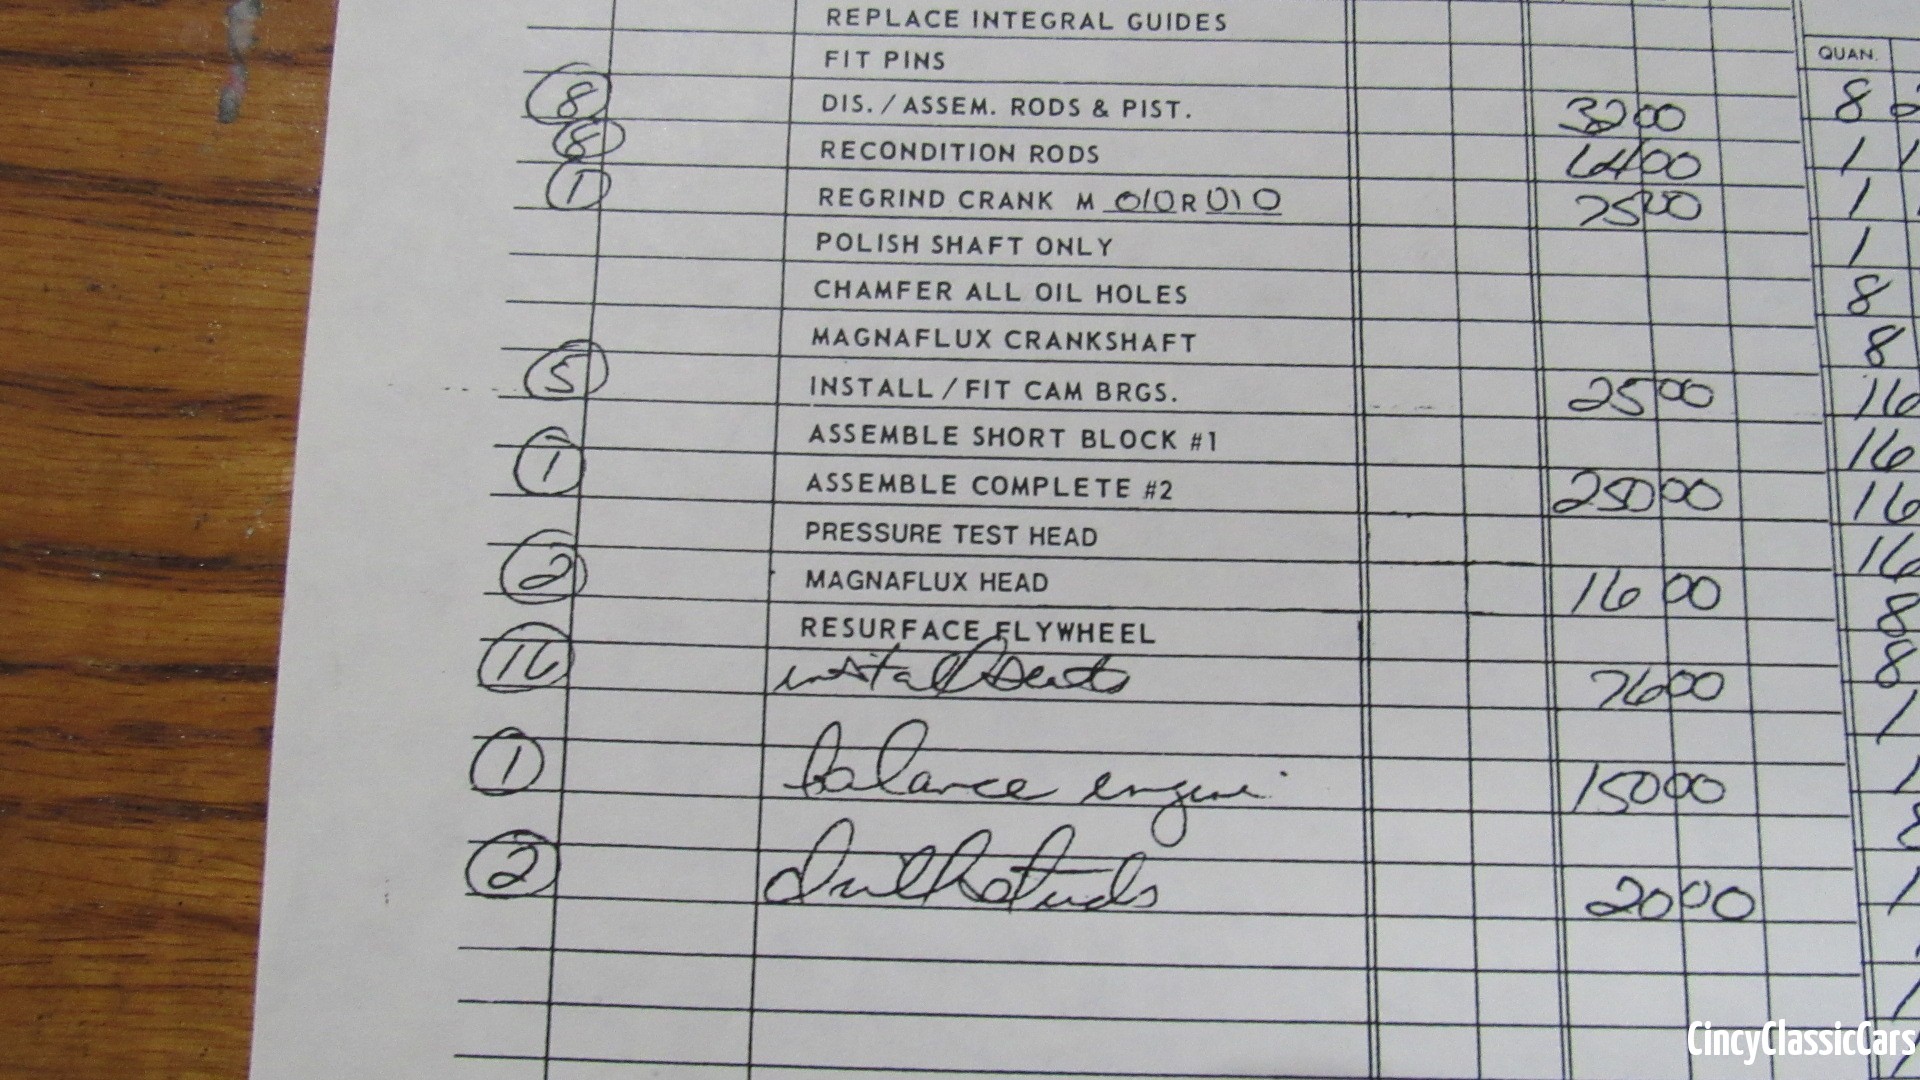 REPLACE INTEGRAL GUIDES
FIT PINS
QUAN.
8 DIS. / ASSEM. RODS & PIST. 32 00 8
8 RECONDITION RODS 64 00 1
1 REGRIND CRANK M 010 R 010 75 00 1
POLISH SHAFT ONLY 1
CHAMFER ALL OIL HOLES 8
MAGNAFLUX CRANKSHAFT 8
5 INSTALL / FIT CAM BRGS. 25 00 16
ASSEMBLE SHORT BLOCK #1 16
1 ASSEMBLE COMPLETE #2 250 00 16
PRESSURE TEST HEAD 16
2 MAGNAFLUX HEAD 16 00 8
RESURFACE FLYWHEEL 8
16 install seats 76 00 1
1 balance engine 150 00 1
2 drill studs 20 00 1
CincyClassicCars